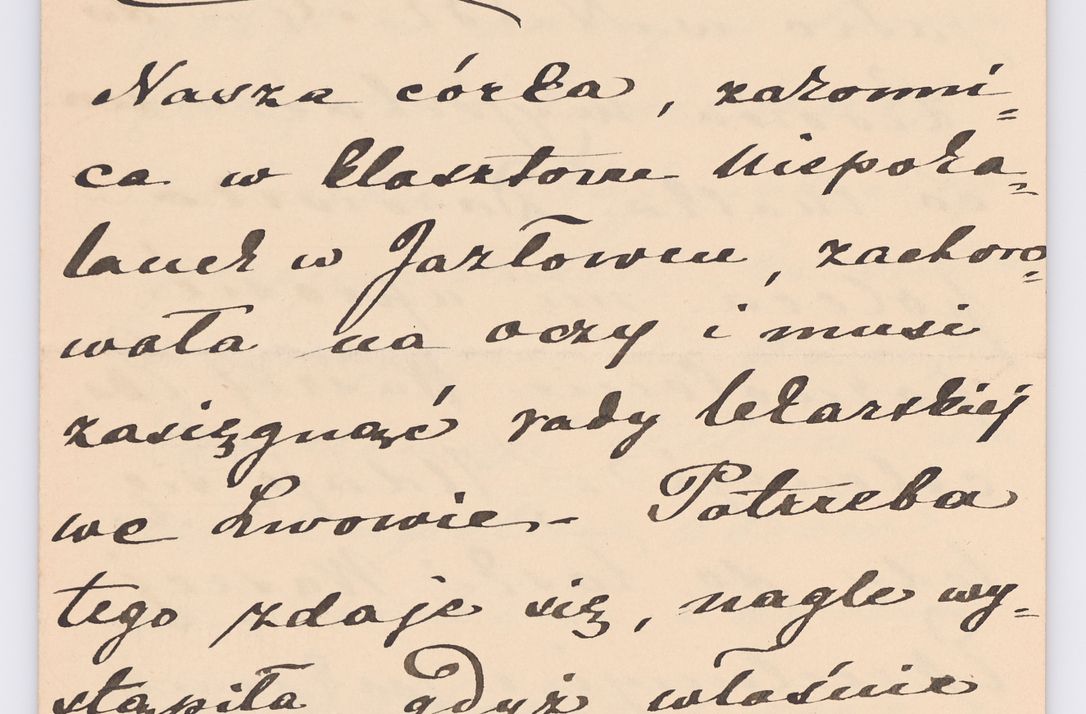 Nasza córka, zakonni=
ca w klasztorze Niepoka=
lanek w Jazłowcu, zachoro=
wała na oczy i musi
zasięgnąć rady lekarskiej
we Lwowie. - Potrzeba
tego zdaje się, nagle wy=
stąpiła gdyż właśnie